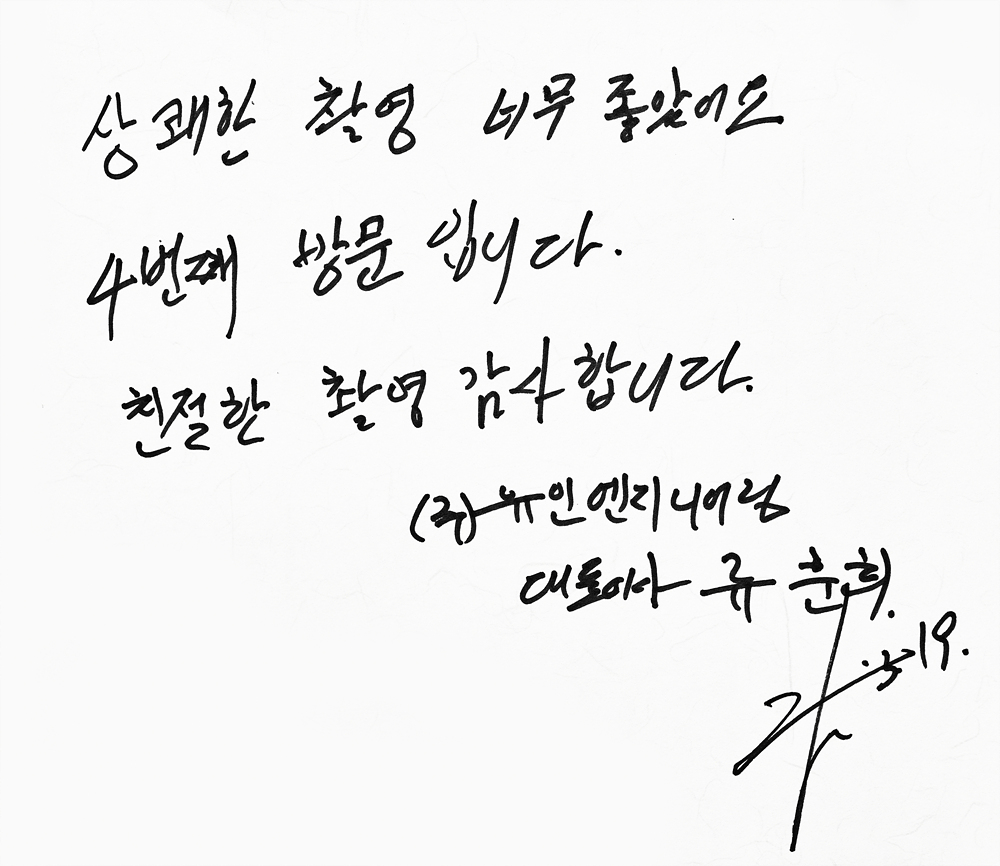 상쾌한 촬영 너무 좋았어요
4번째 방문 입니다.
친절한 촬영 감사합니다.
(주)유인엔지니어링
대표이사 류춘희.
.5.19.